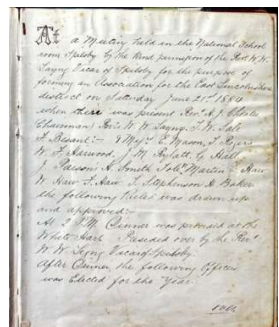 At a Meeting held in the National School
room Spilsby by the kind permission of the Revd W. W.
Layng Vicar of Spilsby for the purpose of
forming an Association for the East Lincolnshire
district on Saturday June 21st 1884
when there was present Revd A. J.
(Chairman) Revd W. W. Layng, T. W.
J. Besant:- & Messrs E. Mason, J. Rogers
W. J. Harwood, J. M. G. Hall
J. Parsons A. Smith Martin Haw
W. Haw J. Haw J. Stephenson H. Baker
the following Rules was drawn up
and approved:-
At 2 PM Dinner was provided at the
White Hart Presided over by the Revd
W. W. Layng Vicar of Spilsby
After Dinner the following Officers
was Elected for the Year.